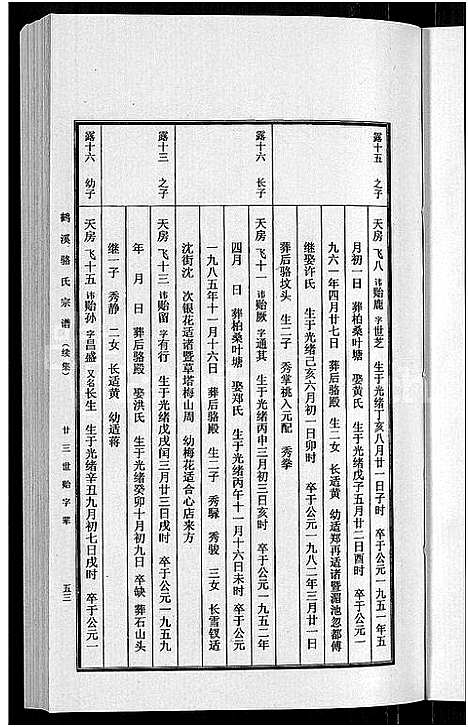 露十五 之子
天房 飞八 讳贻鹿 字世芝 生于光绪丁亥八月廿一日子时 卒于公元一九五一年五
月初一日 葬柏桑叶塘 娶黄氏 生于光绪戊子五月廿二日酉时 卒于公元一
九六一年四月廿七日 葬后骆殿 生二女 长适黄 幼适郑再适诸暨湄池忽都傅
继娶许氏 生于光绪己亥六月初一日卯时 卒于公元一九八二年三月廿一日
葬后骆坟头 生二子 秀掌祧入元配 秀拳
露十六 长子
天房 飞十一 讳贻厥 字通其 生于光绪丙申三月初三日亥时 卒于公元一九五二年
四月 日 葬柏桑叶塘 娶郑氏 生于光绪丙午十一月十六日未时 卒于公元
一九八五年十一月十六日 葬后骆殿 生二子 秀骒 秀骏 三女 长雪钗适
沈街沈 次银花适诸暨草塔梅山周 幼梅花适合心店来方
露十三 之子
天房 飞十三 讳贻留 字有行 生于光绪戊戌闰三月廿三日戌时 卒于公元一九五九
年 月 日 葬后骆殿 娶洪氏 生于光绪癸卯十月初九日 卒缺 葬石山头
继一子 秀静 二女 长适黄 幼适蒋
露十六 幼子
天房 飞十五 讳贻孙 字昌盛 又名长生 生于光绪辛丑九月初七日戌时 卒于公元一
鹤溪骆氏宗谱（续集） 廿三世贻字辈 五三